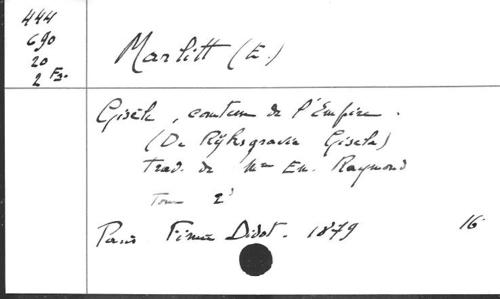 444
690
20
2 Fs.
Marlitt (E.)
Gisèle, comtesse de l'Empire.
(De Rijksgravin Gisela)
trad. de Mme Em. Raymond
Tome 2d
Paris Firmin Didot. 1879 16